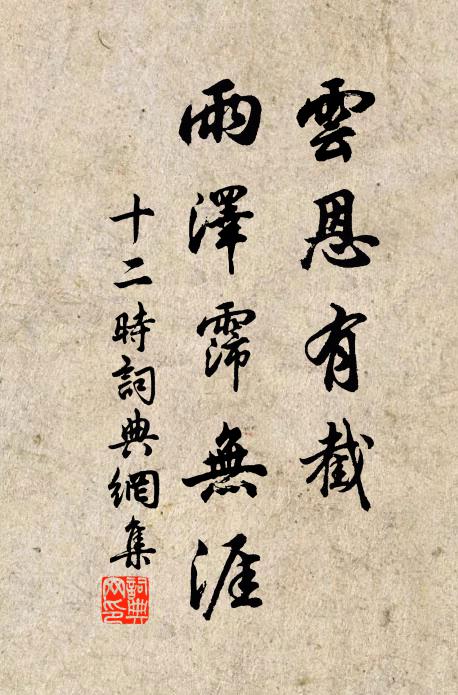 雲恩有截
雨澤霈無涯
十二時詞典網集
詞典網印